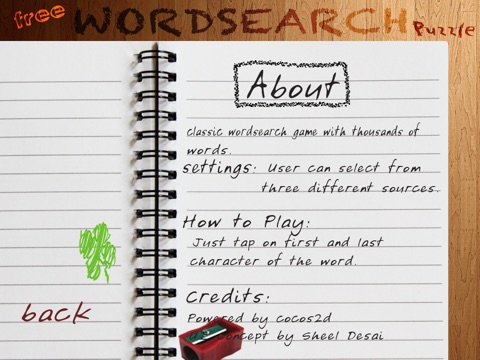 free WORDSEARCH Puzzle
About
Classic wordsearch game with thousands of
words.
settings: User can select from
three different sources.
How to Play:
Just tap on first and last
character of the word.
Credits:
Powered by cocos2d
Concept by Sheel Desai
back